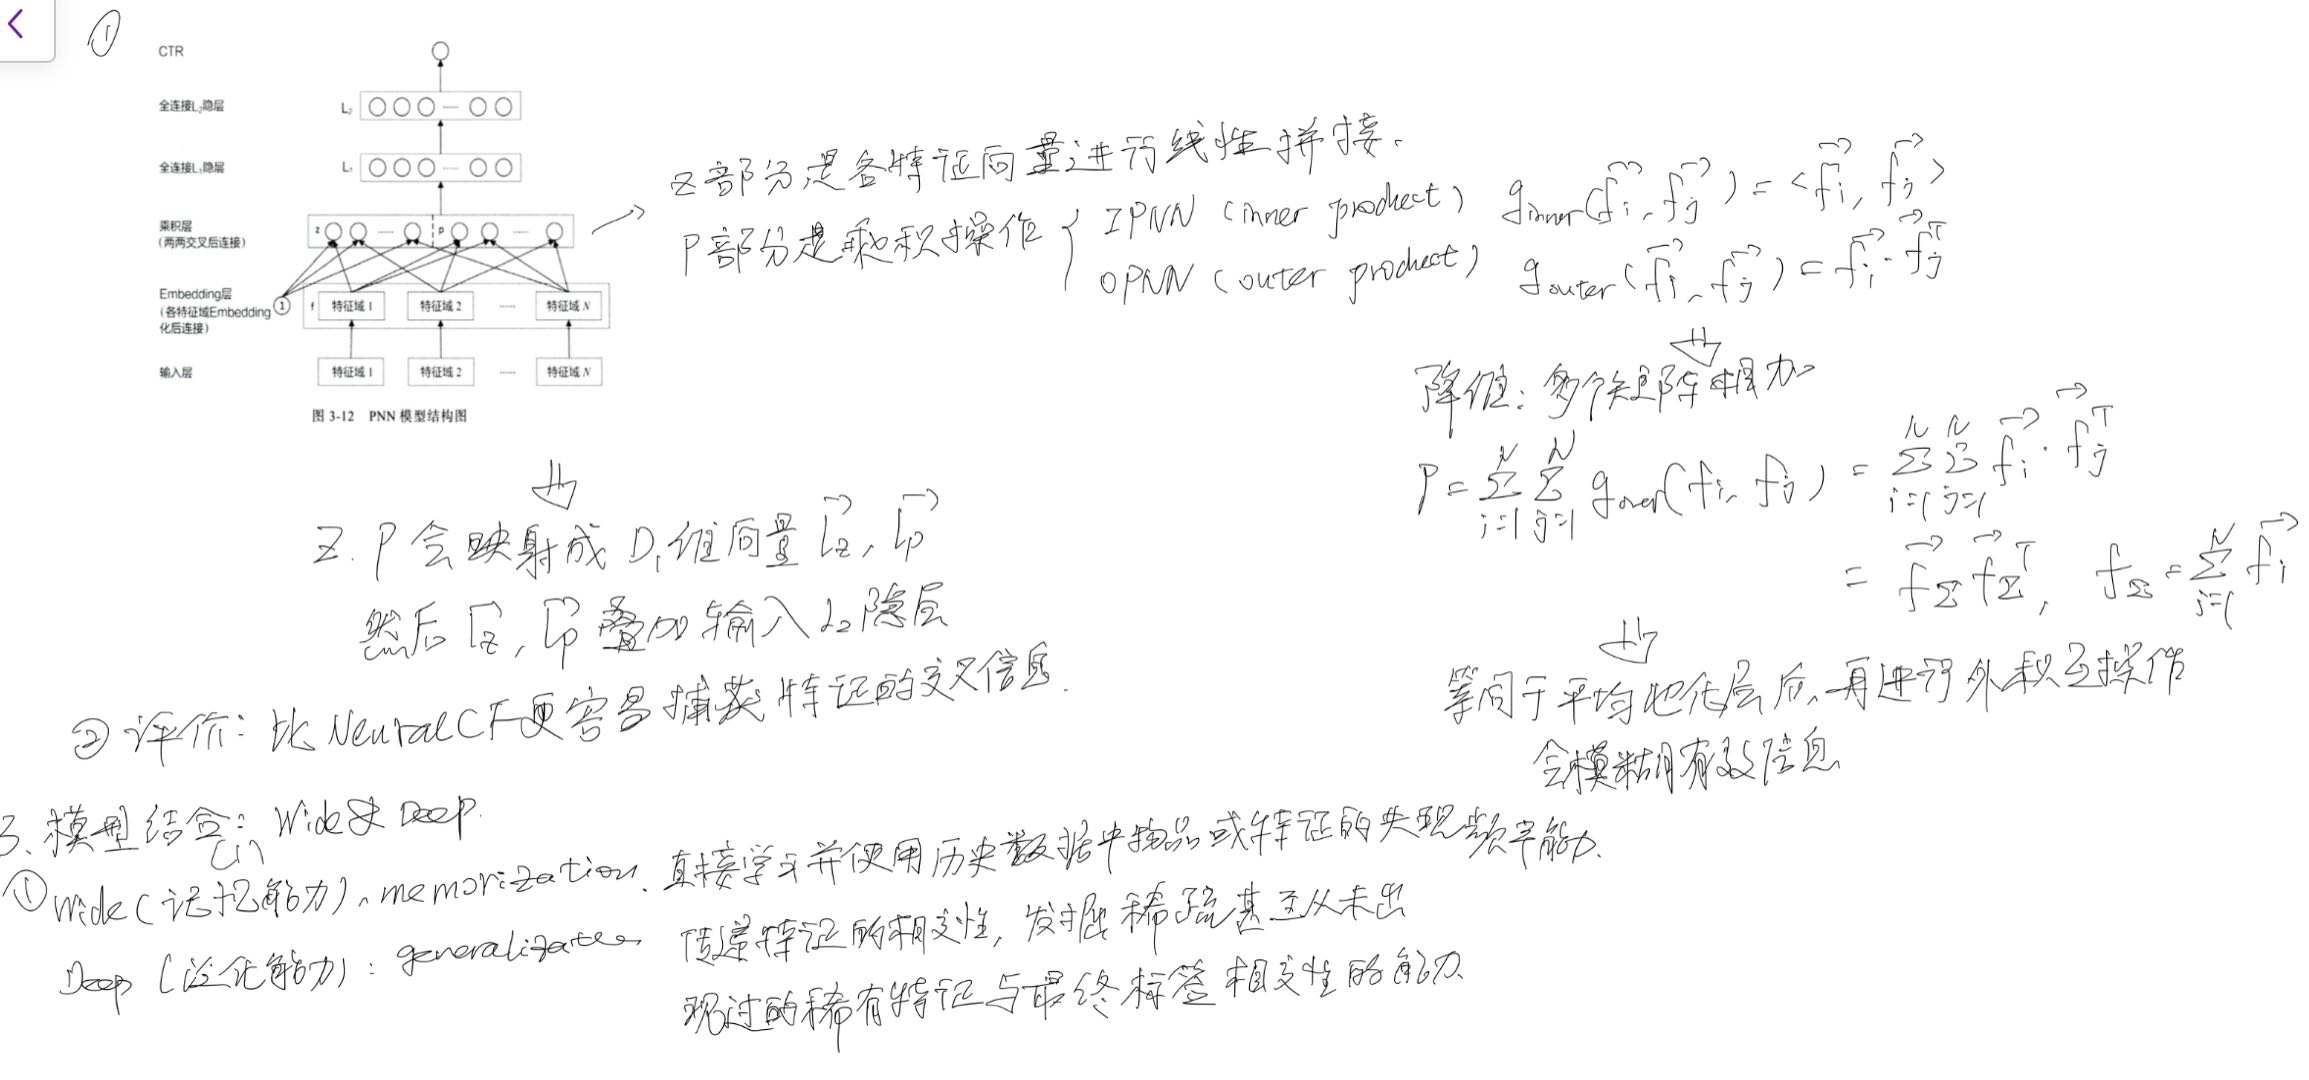 ①
CTR
全连接L₂隐层
L₂ ······
全连接L₁隐层
L₁ ······
乘积层
(两两交叉后连接)
z ······ p ······
Embedding层
(各特征域Embedding
化后连接)
1 f 特征域 1 特征域 2 ······ 特征域 N
输入层 特征域 1 特征域 2 ······ 特征域 N
图 3-12 PNN 模型结构图
z部分是各特征向量进行线性拼接.
P部分是乘积操作 { IPNN (inner product) g_inner(f⃗i, f⃗j) = <f⃗i, f⃗j>
OPNN (outer product) g_outer(f⃗i, f⃗j) = f⃗i · f⃗j^T
⇓
降维: 多个矩阵相加
P = Σ_{i=1}^N Σ_{j=1}^N g_outer(fi, fj) = Σ_{i=1}^N Σ_{j=1}^N f⃗i · f⃗j^T
= f⃗_Σ f⃗_Σ^T, f_Σ = Σ_{i=1}^N f⃗i
⇓
等同于平均池化层后,再进行外积互操作
会模糊有效信息
⇓
Z. P 会映射成 D₁维向量 l⃗z, l⃗p
然后 l⃗z, l⃗p 叠加输入 L₂ 隐层
② 评价: 比 NeuralCF更容易捕获特征的交叉信息.
3. 模型结合: Wide & Deep.
(1)
① Wide (记忆能力), memorization. 直接学习并使用历史数据中物品或特征的共现频率能力.
Deep (泛化能力): generalization 传递特征的相关性, 发掘稀疏甚至从未出
现过的稀有特征与最终标签相关性的能力.